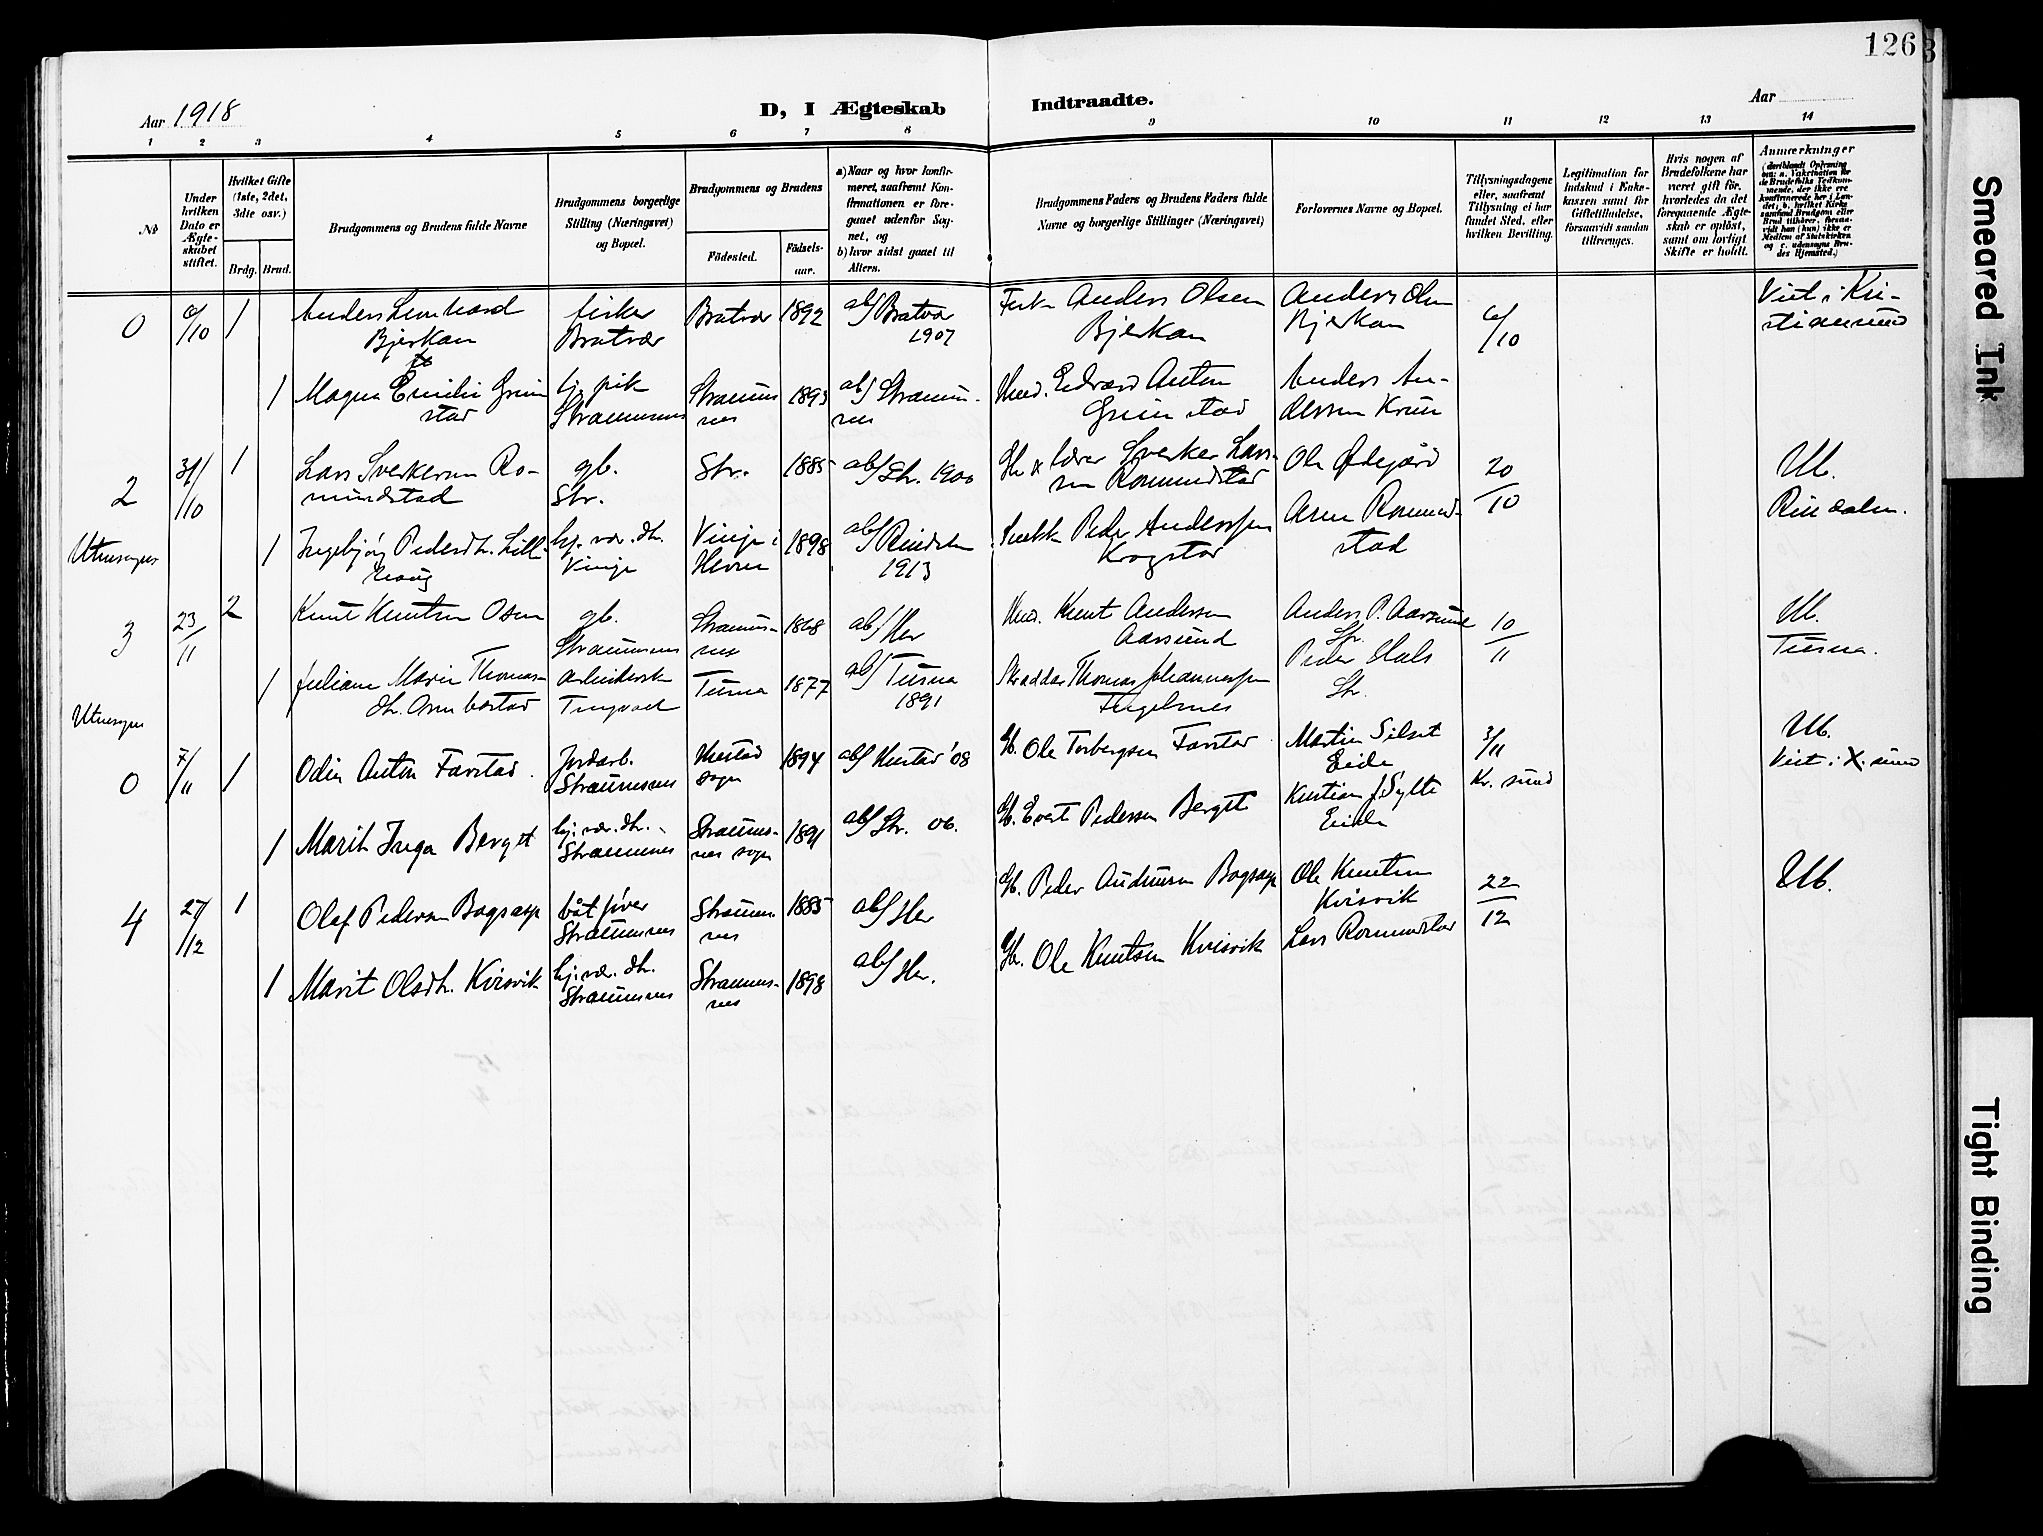 126
Aar 1918
D, I Ægteskab
Indtraadte.
Aar
1 2 3 4 5 6 7 8 9 10 11 12 13 14
No
Under hvilken Dato er Ægteskabet stiftet.
Hvilket Gifte (1ste, 2det, 3die osv.)
Brdg. Brud.
Brudgommens og Brudens fulde Navne
Brudgommens borgerlige Stilling (Næringsvei) og Bopæl.
Brudgommens og Brudens
Fødested.
Fødselsaar.
a) Naar og hvor konfirmeret, saafremt Konfirmationen er foregaaet udenfor Sognet, og
b) hvor sidst gaaet til Alters.
Brudgommens Faders og Brudens Faders fulde Navne og borgerlige Stillinger (Næringsvei)
Forlovernes Navne og Bopæl.
Tillysningsdagene eller, saafremt Tillysning ei har fundet Sted, efter hvilken Bevilling.
Legitimation for Indskud i Enkekassen samt for Giftetilladelse, forsaavidt saadan tiltrænges.
Hvis nogen af Brudefolkene har været gift før, hvorledes da det foregaaende Ægteskab er opløst, samt om lovligt Skifte er holdt.
Anmærkninger
0 6/10 1 Anders Leonhard Bjerkan fisker Bratvær Bratvær 1892 ab/ Bratvær 1907 Anders Olsen Bjerkan Anders Olsen Bjerkan 6/10 Viet i Kristiansund
1 Magna Emilie Grimstad hj. pik Straumsnes Straumsnes 1893 ab/ Straumsnes Edvard Anton Grimstad Anders Andersen
2 31/10 1 Lars Sverkersen Romundstad gb. Str. Str. 1885 ab/ Str. 1900 Gb. & lærer Sverker Larssen Romundstad Ole Ødegård 20/10 Ub. Rindalen.
Utnesognes
1 Ingebjørg Pedersdtr. Lillehaug hj. vær. dtr. Vinje Vinje i Hevne 1898 ab/ Rindalen 1913 Peder Anderssen Krogstad Arne Romundstad
3 23/11 2 Knut Knutsen Osen gb. Straumsnes Straumsnes 1868 ab/ Her Knut Andersen Aarsund Anders P. Aarsund Str. 10/11 Ub. Tusna.
1 Juliane Marie Thomasdtr. arbeiderske Tingvoll Tusna 1877 ab/ Tusna 1891 Skrædder Thomas Johannessen Peder Hals Str.
0 7/11 1 Odin Anton Farstad Jordarb. Straumsnes Hustad sogn 1894 ab/ Hustad '08 Gb. Ole Torbergsen Farstad Martin Silset Eide 3/11 Kr. sund Ub. Viet i X. sund
1 Marit Inga Berget hj. vær. dtr. Straumsnes Straumsnes sogn 1891 ab/ Str. 06. Gb. Evert Pedersen Berget Kristian J Sylte Eide
4 27/12 1 Olaf Pedersen Bogsasp båtfører Straumsnes Straumsnes 1885 ab/ Her Gb. Peder Audunsen Bogsasp Ole Knutsen Kvisvik 22/12 Ub.
1 Marit Olsdtr. Kvisvik hj. vær. dtr. Straumsnes Straumsnes 1898 ab/ Her. Gb. Ole Knutsen Kvisvik Lars Romundstad
Smeared Ink
Tight Binding